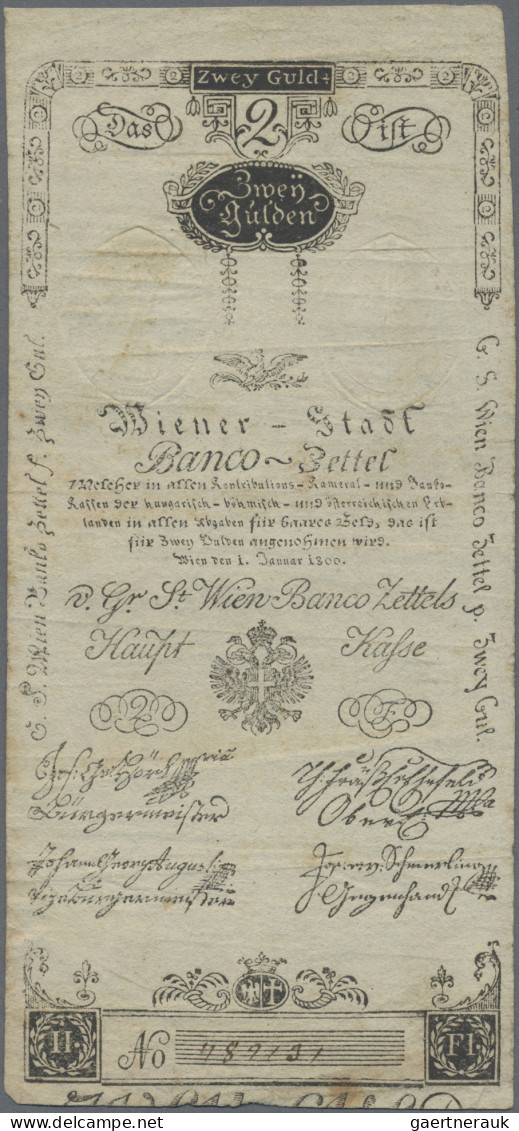 2 2 Zwey Guld. 2 2
Das 2 ist
Zweÿ
Gulden
Wiener – Stadt
Banco ~ Zettel
Welcher in allen Kontributions – Kameral – und Banko–
Kassen der hungarisch – böhmisch – und österreichischen Erb–
landen in allen Abgaben für baares Geld, das ist
für Zwey Gulden angenohmen wird.
Wien den 1. Januar 1800.
G. S. Wien Banko Zettel p. Zwey Gul.
G. S. Wien Banco Zettel p. Zwey Gul.
v. Gr. St. Wien Banco Zettels
Haupt Kasse
2 F.
Bürgermeister
Obereinn.
Johann Georg Augusti
Vizebürgermeister
Jos. v. Schmerling
Gegenhandl
II. No 489131 Fl.
gaertnerauk
© delcampe.net/gaertnerauk